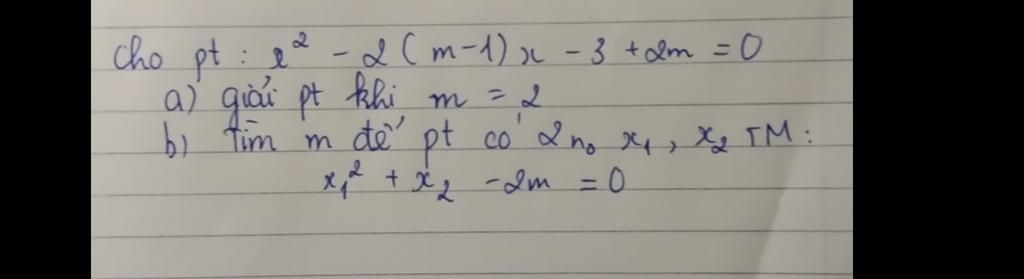 Cho pt : x² - 2 ( m-1) x - 3 + 2m = 0
a) giải pt khi m = 2
b) Tìm m để pt có 2 n₀ x₁ , x₂ TM :
x₁² + x₂ - 2m = 0